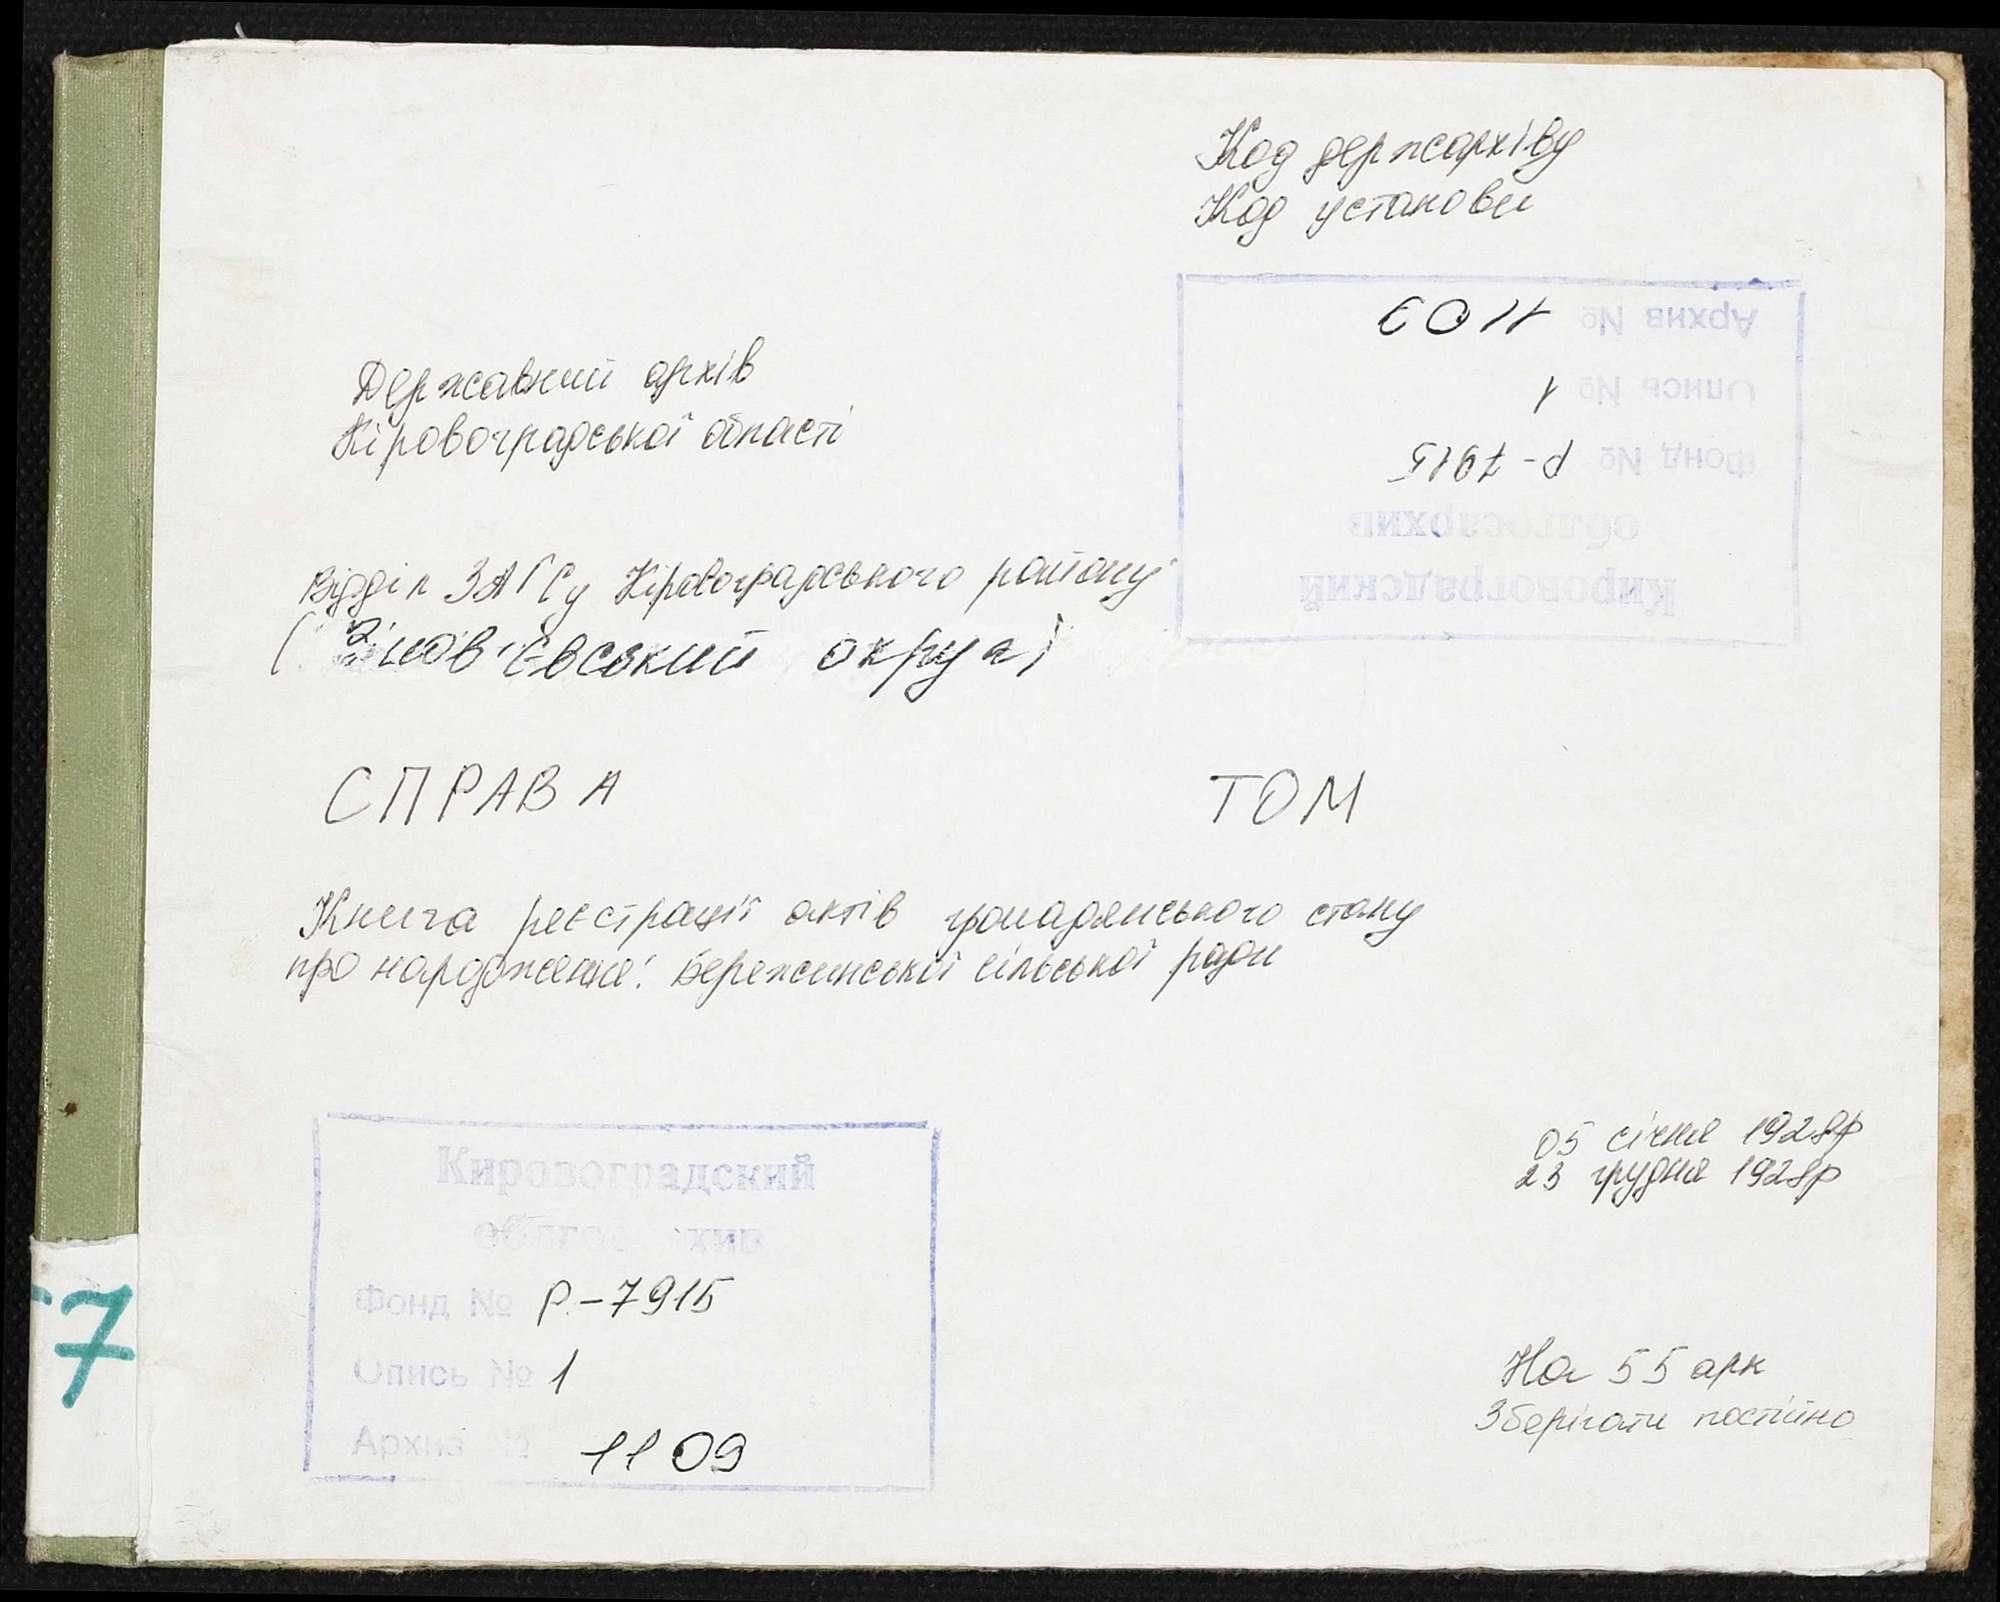 Код держархіву
Код установи
Кировоградский
облгосархив
Фонд № Р-7915
Опись № 1
Архив № 1109
Державний архів
Кіровоградської області
Відділ ЗАГСу Кіровоградського району
(Зінов' євський округа)
СПРАВА ТОМ
Книга реєстрації актів громадянського стану
про народження: Бережинської сільської ради
05 січня 1928р
23 грудня 1928р
Кировоградский
облгосархив
Фонд № Р-7915
Опись № 1
Архив № 1109
На 55 арк
Зберігати постійно
7